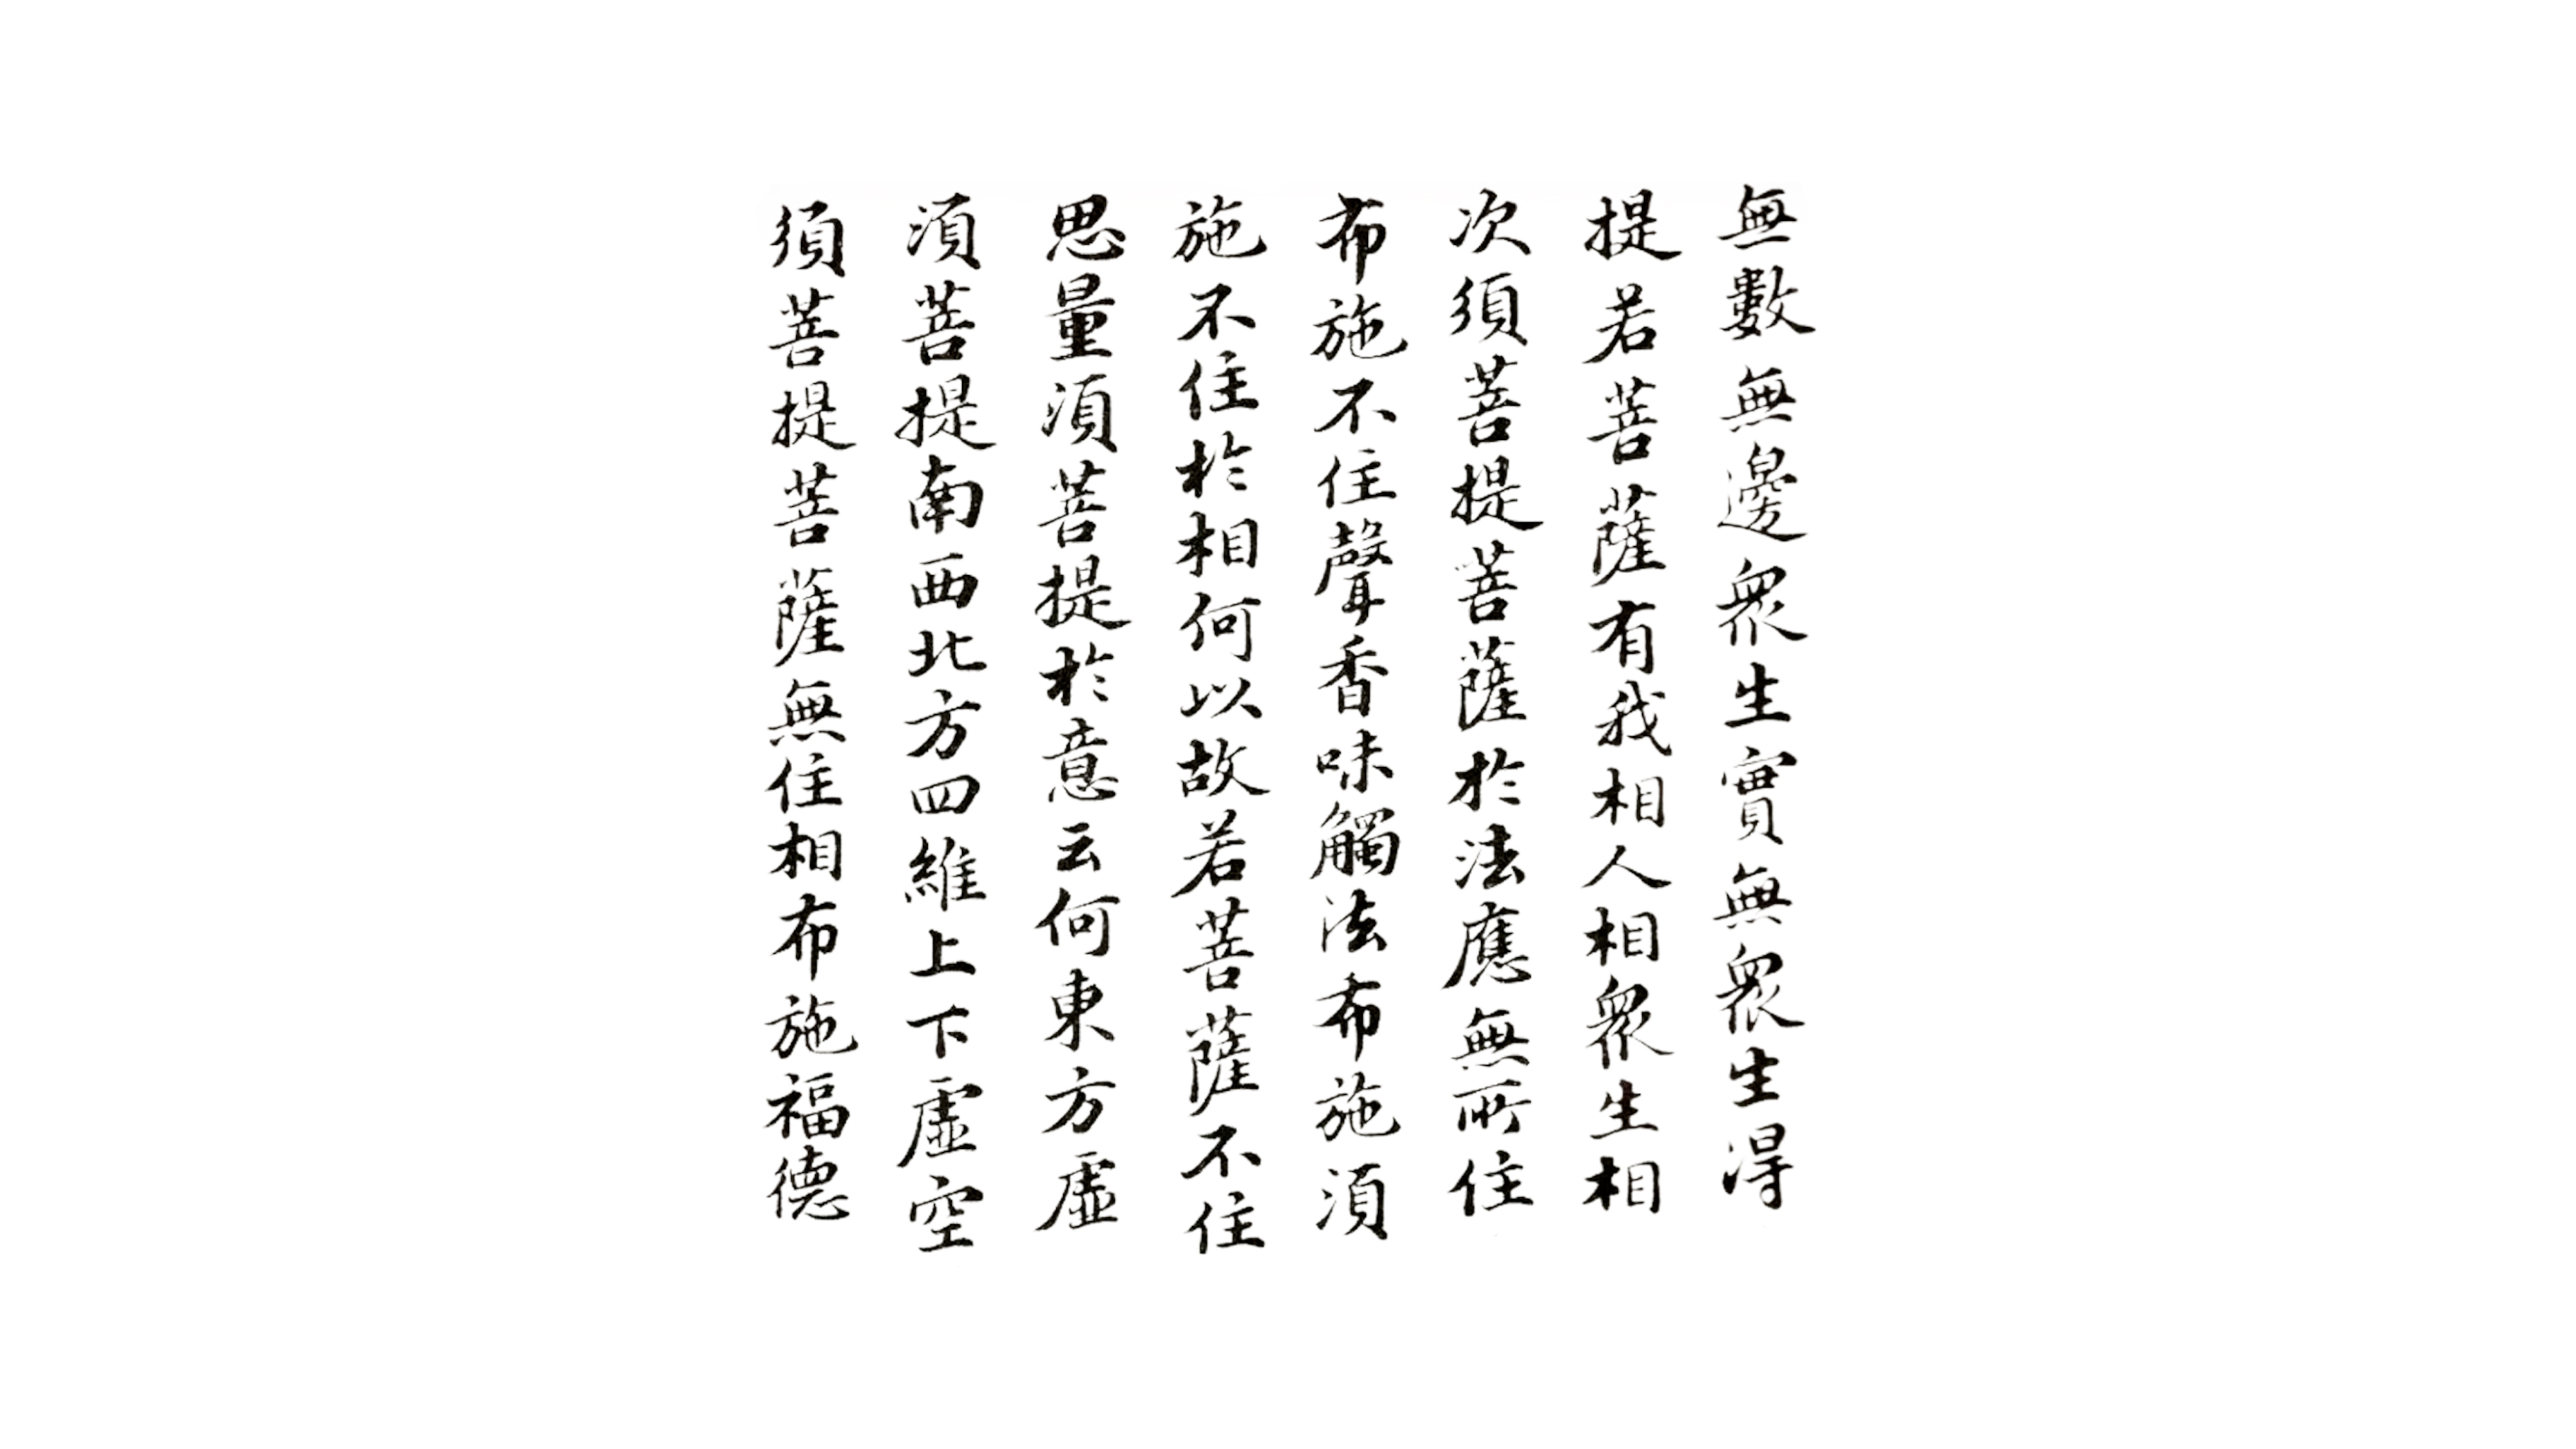 無數無邊眾生實無眾生得
提若菩薩有我相人相眾生相
次須菩提菩薩於法應無所住
布施不住聲香味觸法布施須
施不住於相何以故若菩薩不住
思量須菩提於意云何東方虛
須菩提南西北方四維上下虛空
須菩提菩薩無住相布施福德